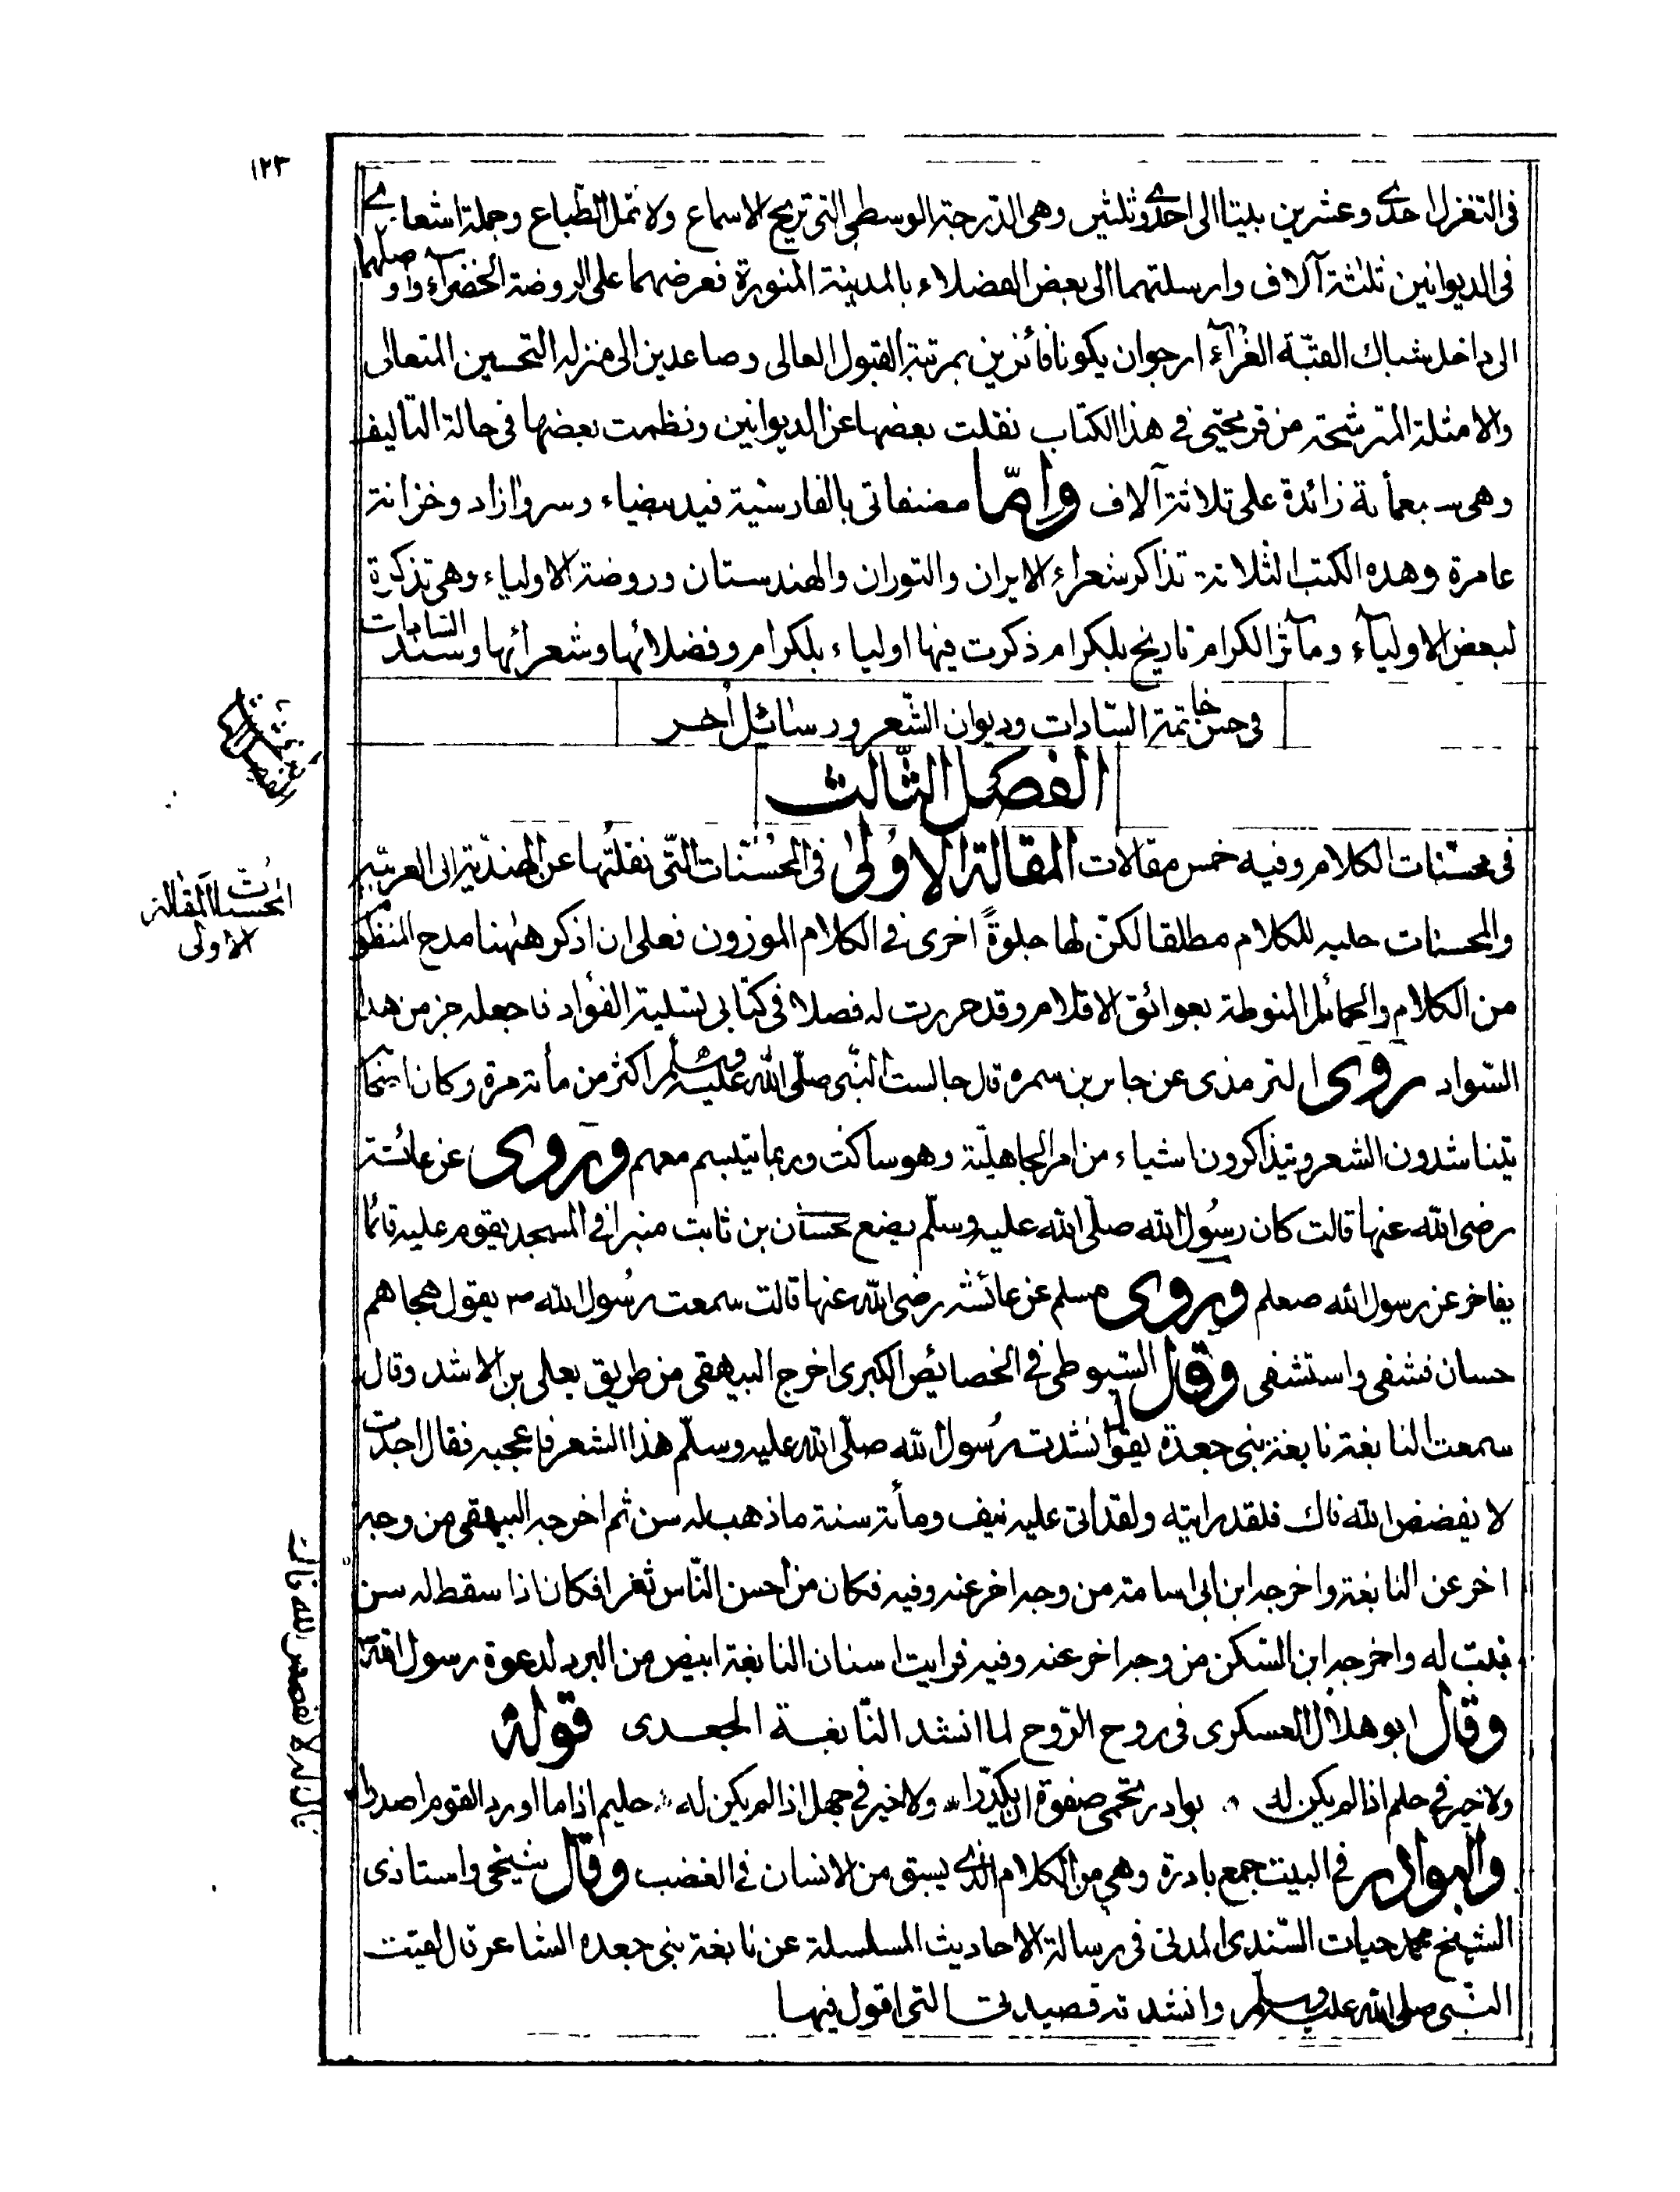 ١٢٣
فى التغزل احدى وعشرين بيتا الى احدى وثلثين وهى الدرجة الوسطى التى تريح الاسماع ولا تمل الطباع وجملة اشعارى
فى الديوانين ثلثة آلاف وارسلتهما الى بعض الفضلاء بالمدينة المنورة فعرضهما على الروضة الخضراء واوصلهما
الى داخل شباك القبّة الغرّآء ارجوان يكونا فائزين بمرتبة القبول العالى وصاعدين الى منزلة التحسين المتعالى
والامثلة المترشحة من قريحتى فى هذا الكتاب نقلت بعضها عن الديوانين ونظمت بعضها فى حالة التاليف
وهى سبعمأئة زائدة على ثلاثة آلاف وامّا مصنفاتى بالفارسية فيد بيضاء وسرو ازاد وخزانة
عامرة وهذه الكتب الثلاثة تذاكر شعراء الايران والتوران والهندستان وروضة الاولياء وهى تذكرة
لبعض الاولياء ومآثر الكرام تاريخ بلكرام ذكرت فيها اولياء بلكرام وفضلائها وشعرائها وسند السادات
فى حسن خاتمة السّادات وديوان الشّعر ورسائل اُخر
الفصل الثّالث
فى محسّنات الكلام وفيه خمس مقالات المقالة الاُولىٰ فى المحُسّنات التّى نقلتُها عن الهنديّة الى العربيّة
المحسنات المقالة
الاولى
والمحسنات حلية للكلام مطلقا لكنّ لها جلوةً اخرى فى الكلام الموزون فعلى ان اذكر ههنا مدح المنظوم
من الكلام والحمائل المنوطة بعوائق الاقلام وقد حررت له فصلا فى كتابى تسلية الفؤاد فاجعله جز من هذا
السّواد روى الترمذى عن جابر بن سمره قال جالست النّبى صلّى الله عليه وسلم اكثر من مأة مرة وكان اصحا
يتناشدون الشعر ويتذاكرون اشياء من امر الجاهليّة وهو ساكت وربما يتبسم معهم وروى عن عائشة
رضى الله عنها قالت كان رسُول الله صلّى الله عليه وسلّم يضع لحسّان بن ثابت منبرا فى المسجد يقوم عليه قائما
يفاخر عن رسول الله صعلم وروى مسلم عن عائشة رضى الله عنها قالت سمعت رسُول الله ص يقول هجاهم
حسان فشفى واستشفى وقال السّيوطى فى الخصائص الكبرى اخرج البيهقى من طريق يعلى بن الاشد وقال
سمعت النابغة نابغة بنى جعدة يقول انشدت رسُول الله صلّى الله عليه وسلّم هذا الشعر فاعجبه فقال اجدت
لا يفضض الله فاك فلقد رايته ولقد اتى عليه نيف ومأة سنة ما ذهب له سن ثم اخرجه البيهقى من وجه
اخر عن النابغة واخرجه ابن ابى اسامة من وجه اخر عنه وفيه فكان من احسن النّاس ثغرا فكان اذا سقط له سن
نبت له واخرجه ابن السّكن من وجه اخر عنه وفيه فرايت اسنان النابغة ابيض من البرد لدعوة رسول الله
وقال ابو هلال العسكرى فى روح الرّوح لما انشد النّابغة الجعدى قوله
ولا خير فى حلم اذا لم يكن له بوادر تحمى صفوة ان يكدّرا ولا خير فى جهل اذا لم يكن له حليم اذا ما اورد القوم اصدرا
والبوادر فى البيت جمع بادرة وهى من الكلام الذى يسبق من الانسان فى الغضب وقال شيخى واستاذى
الشيخ محمد حيات السّندى المدنى فى رسالة الاحاديث المسلسلة عن نابغة بنى جعده الشاعر قال لقيت
النّبى صلى الله عليه وسلم وانشدته قصيدتى التى اقول فيها